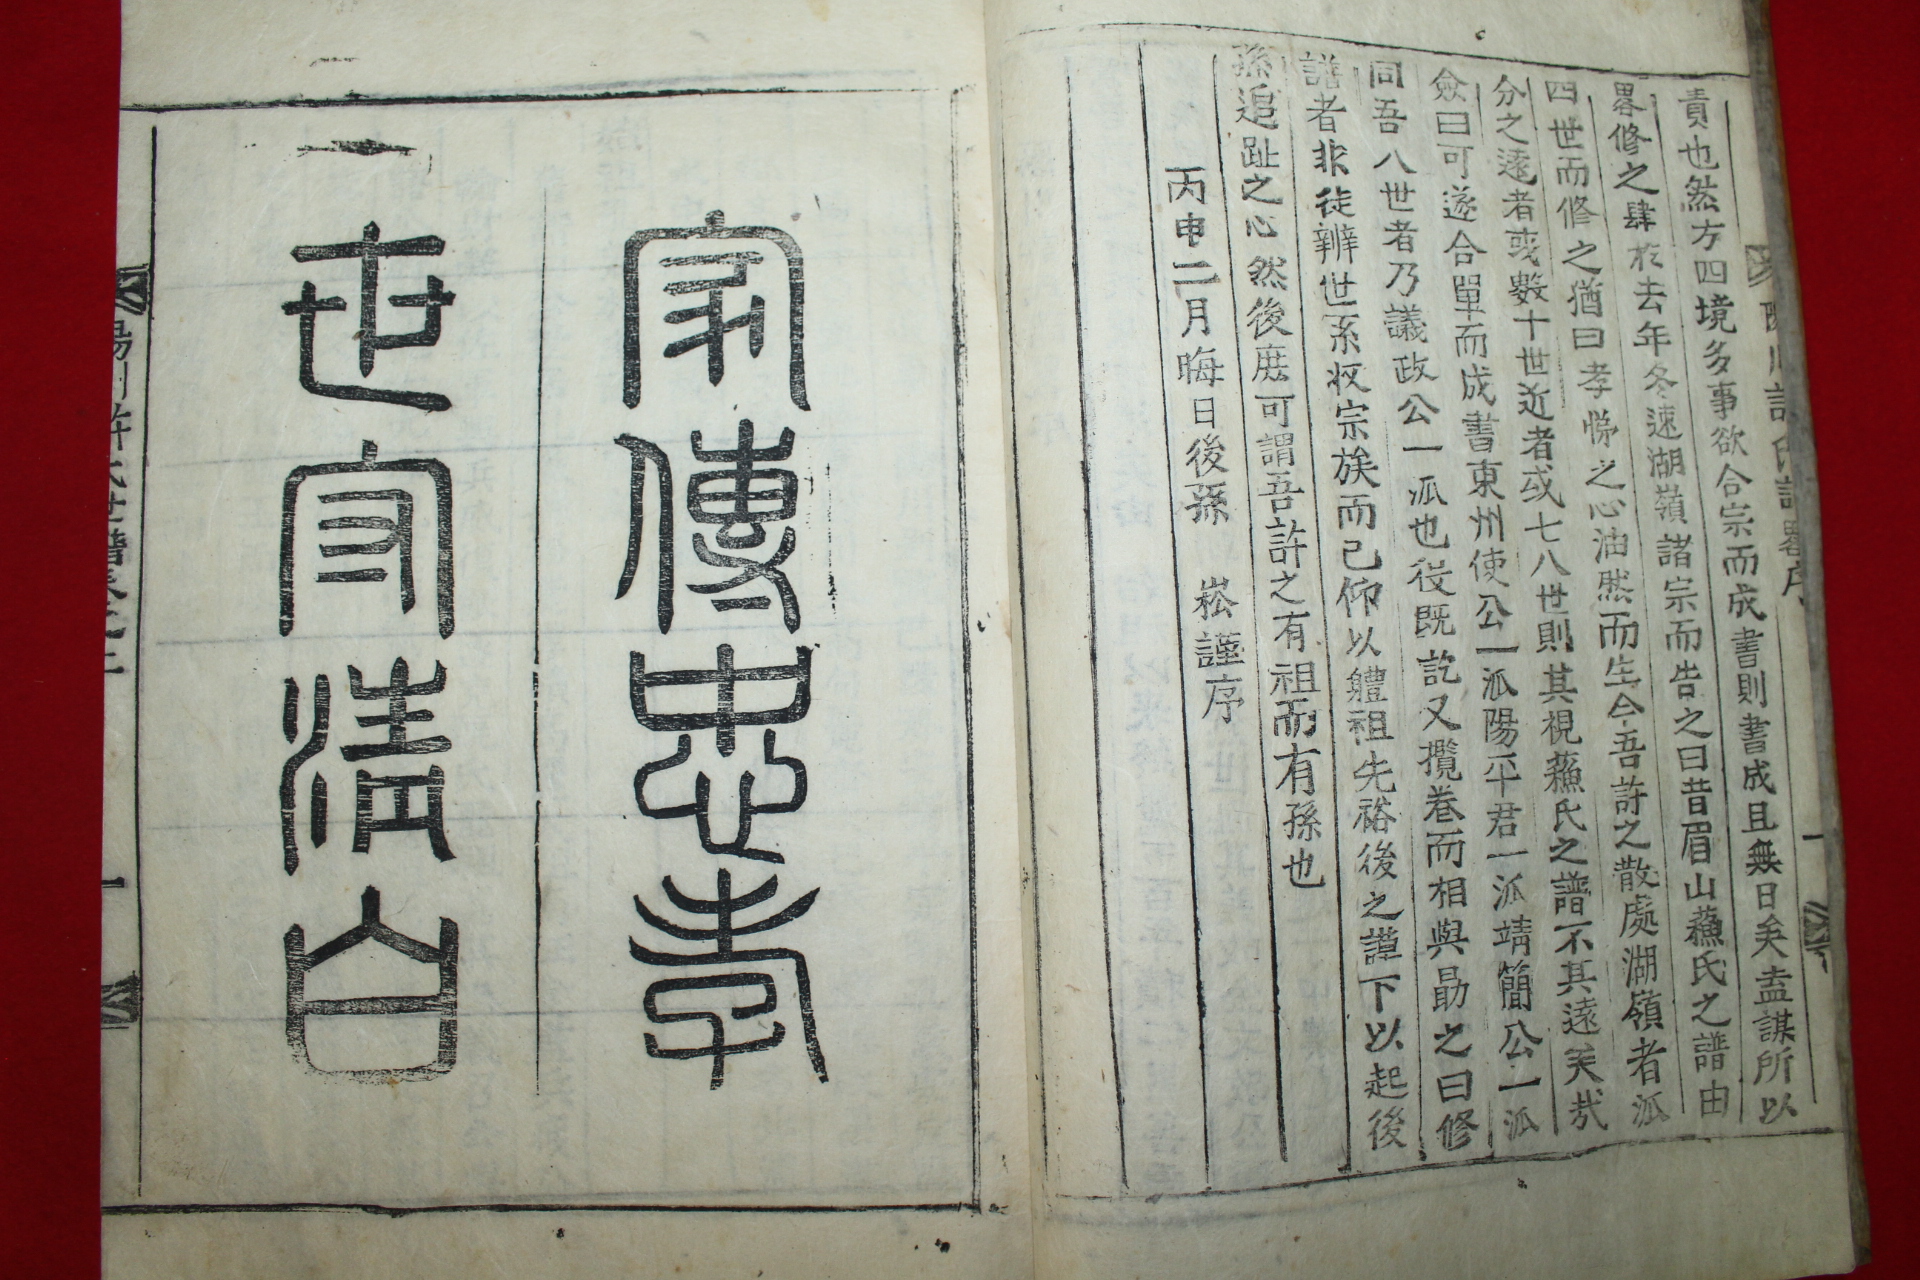 責也然方四境多事欲合宗而成書則書成且無日矣盍謀所以
畧修之肆於去年冬速湖嶺諸宗而告之曰昔眉山蘓氏之譜由
四世而修之猶曰孝悌之心油然而生今吾許之散處湖嶺者派
分之遠者或數十世近者或七八世則其視蘓氏之譜不其遠矣哉
僉曰可遂合單而成書東州使公一派陽平君一派靖簡公一派
同吾八世者乃議政公一派也役既訖又攬卷而相與勗之曰修
譜者非徒辦世系收宗族而已仰以軆祖先裕後之謨下以起後
孫追趾之心然後庶可謂吾許之有祖而有孫也
丙申二月晦日後孫 崧謹序
家傳忠孝
世守清白
陽川許氏世譜卷之二
一